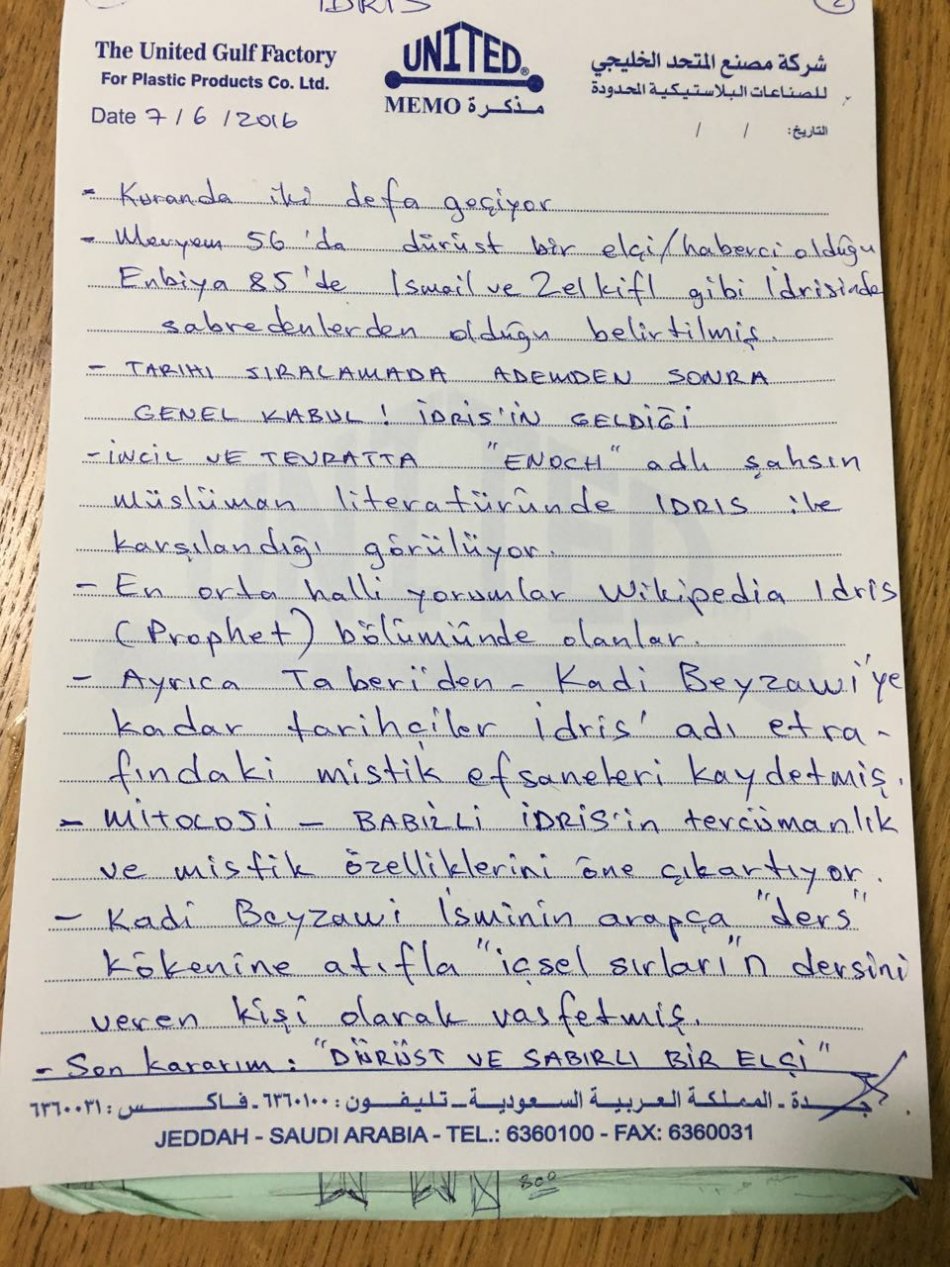 IDRIS
2
The United Gulf Factory
For Plastic Products Co. Ltd.
Date 7 / 6 / 2016
UNITED®
MEMO مذكرة
شركة مصنع المتحد الخليجي
للصناعات البلاستيكية المحدودة
التاريخ: / /
- Kuranda iki defa geçiyor
- Meryem 56'da dürüst bir elçi/haberci olduğu
Enbiya 85'de Ismail ve Zelkifl gibi İdrisinde
sabredenlerden olduğu belirtilmiş.
- TARIHI SIRALAMADA ADEMDEN SONRA
GENEL KABUL! İDRİS'İN GELDİĞİ
- İNCİL VE TEVRATTA "ENOCH" adlı şahsın
müslüman literatüründe IDRIS ile
karşılandığı görülüyor.
- En orta halli yorumlar Wikipedia Idris
(Prophet) bölümünde olanlar.
- Ayrıca Taberi'den - Kadi Beyzawi'ye
kadar tarihçiler İdris' adı etra-
fındaki mistik efsaneleri kaydetmiş.
- MİTOLOJİ - BABİLLİ İDRİS'in tercümanlık
ve mistik özelliklerini öne çıkartıyor.
- Kadi Beyzawi İsminin arapça "ders"
kökenine atıfla "içsel sırları"n dersini
veren kişi olarak vasfetmiş.
- Son kararım: "DÜRÜST VE SABIRLI BİR ELÇİ"
جدة - المملكة العربية السعودية - تليفون: ٦٣٦٠١٠٠ - فاكس: ٦٣٦٠٠٣١
JEDDAH - SAUDI ARABIA - TEL.: 6360100 - FAX: 6360031